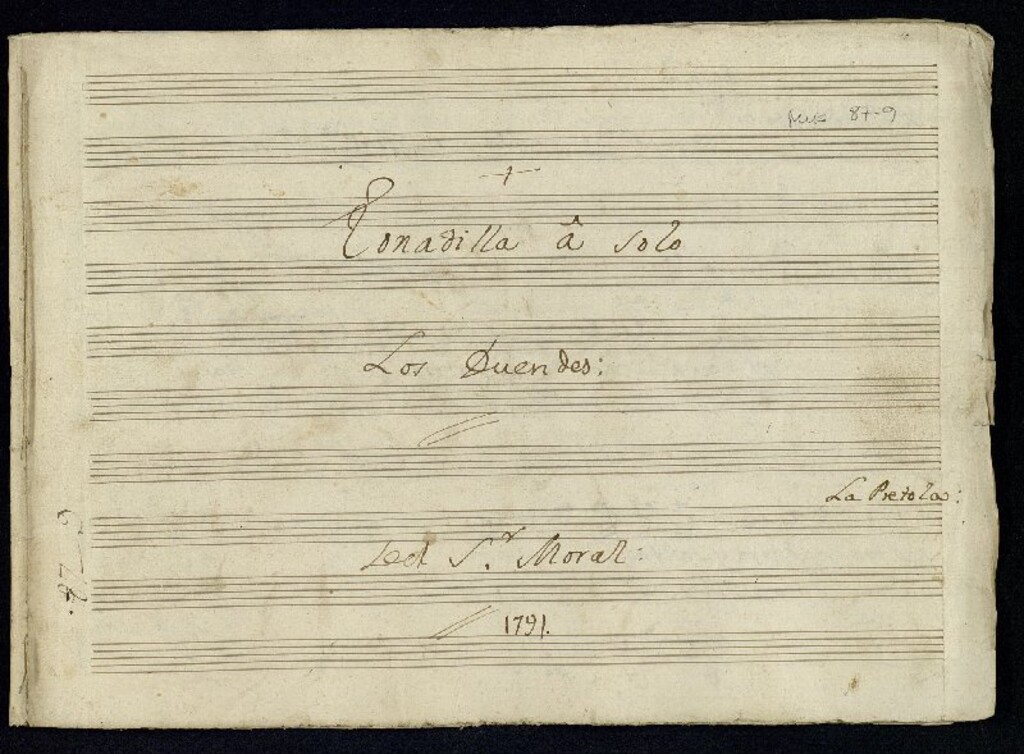 Mus 87-9
Tonadilla â solo
Los Duendes:
La Pretolas:
Del S.r Moral:
1791.